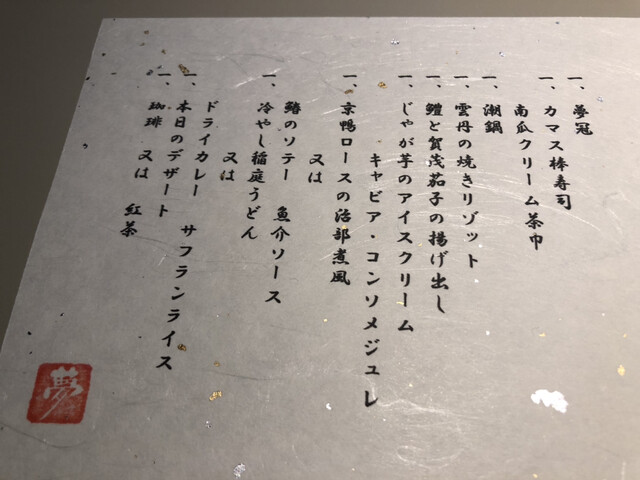 一、夢冠
一、カマス棒寿司
南瓜クリーム茶巾
一、潮鍋
一、雲丹の焼きリゾット
一、鱧と賀茂茄子の揚げ出し
一、じゃが芋のアイスクリーム
キャビア・コンソメジュレ
一、京鴨ロースの治部煮風
又は
鰆のソテー 魚介ソース
一、冷やし稲庭うどん
又は
ドライカレー サフランライス
一、本日のデザート
一、珈琲 又は 紅茶
夢